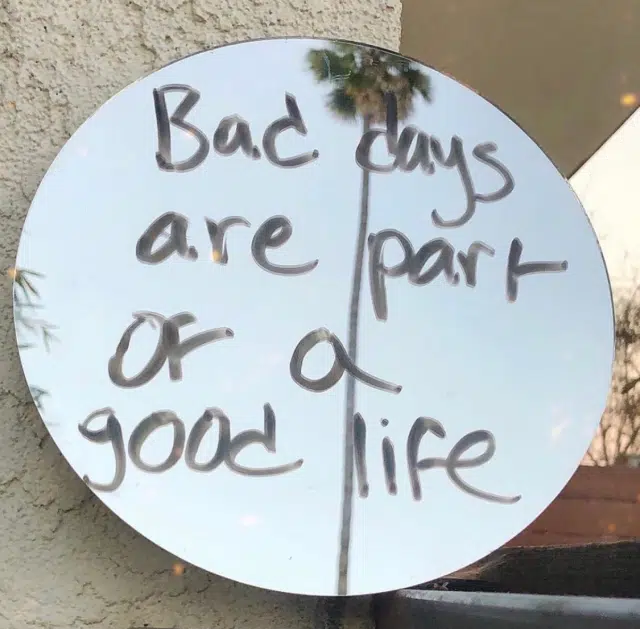 Bad days
are part
of a
good life